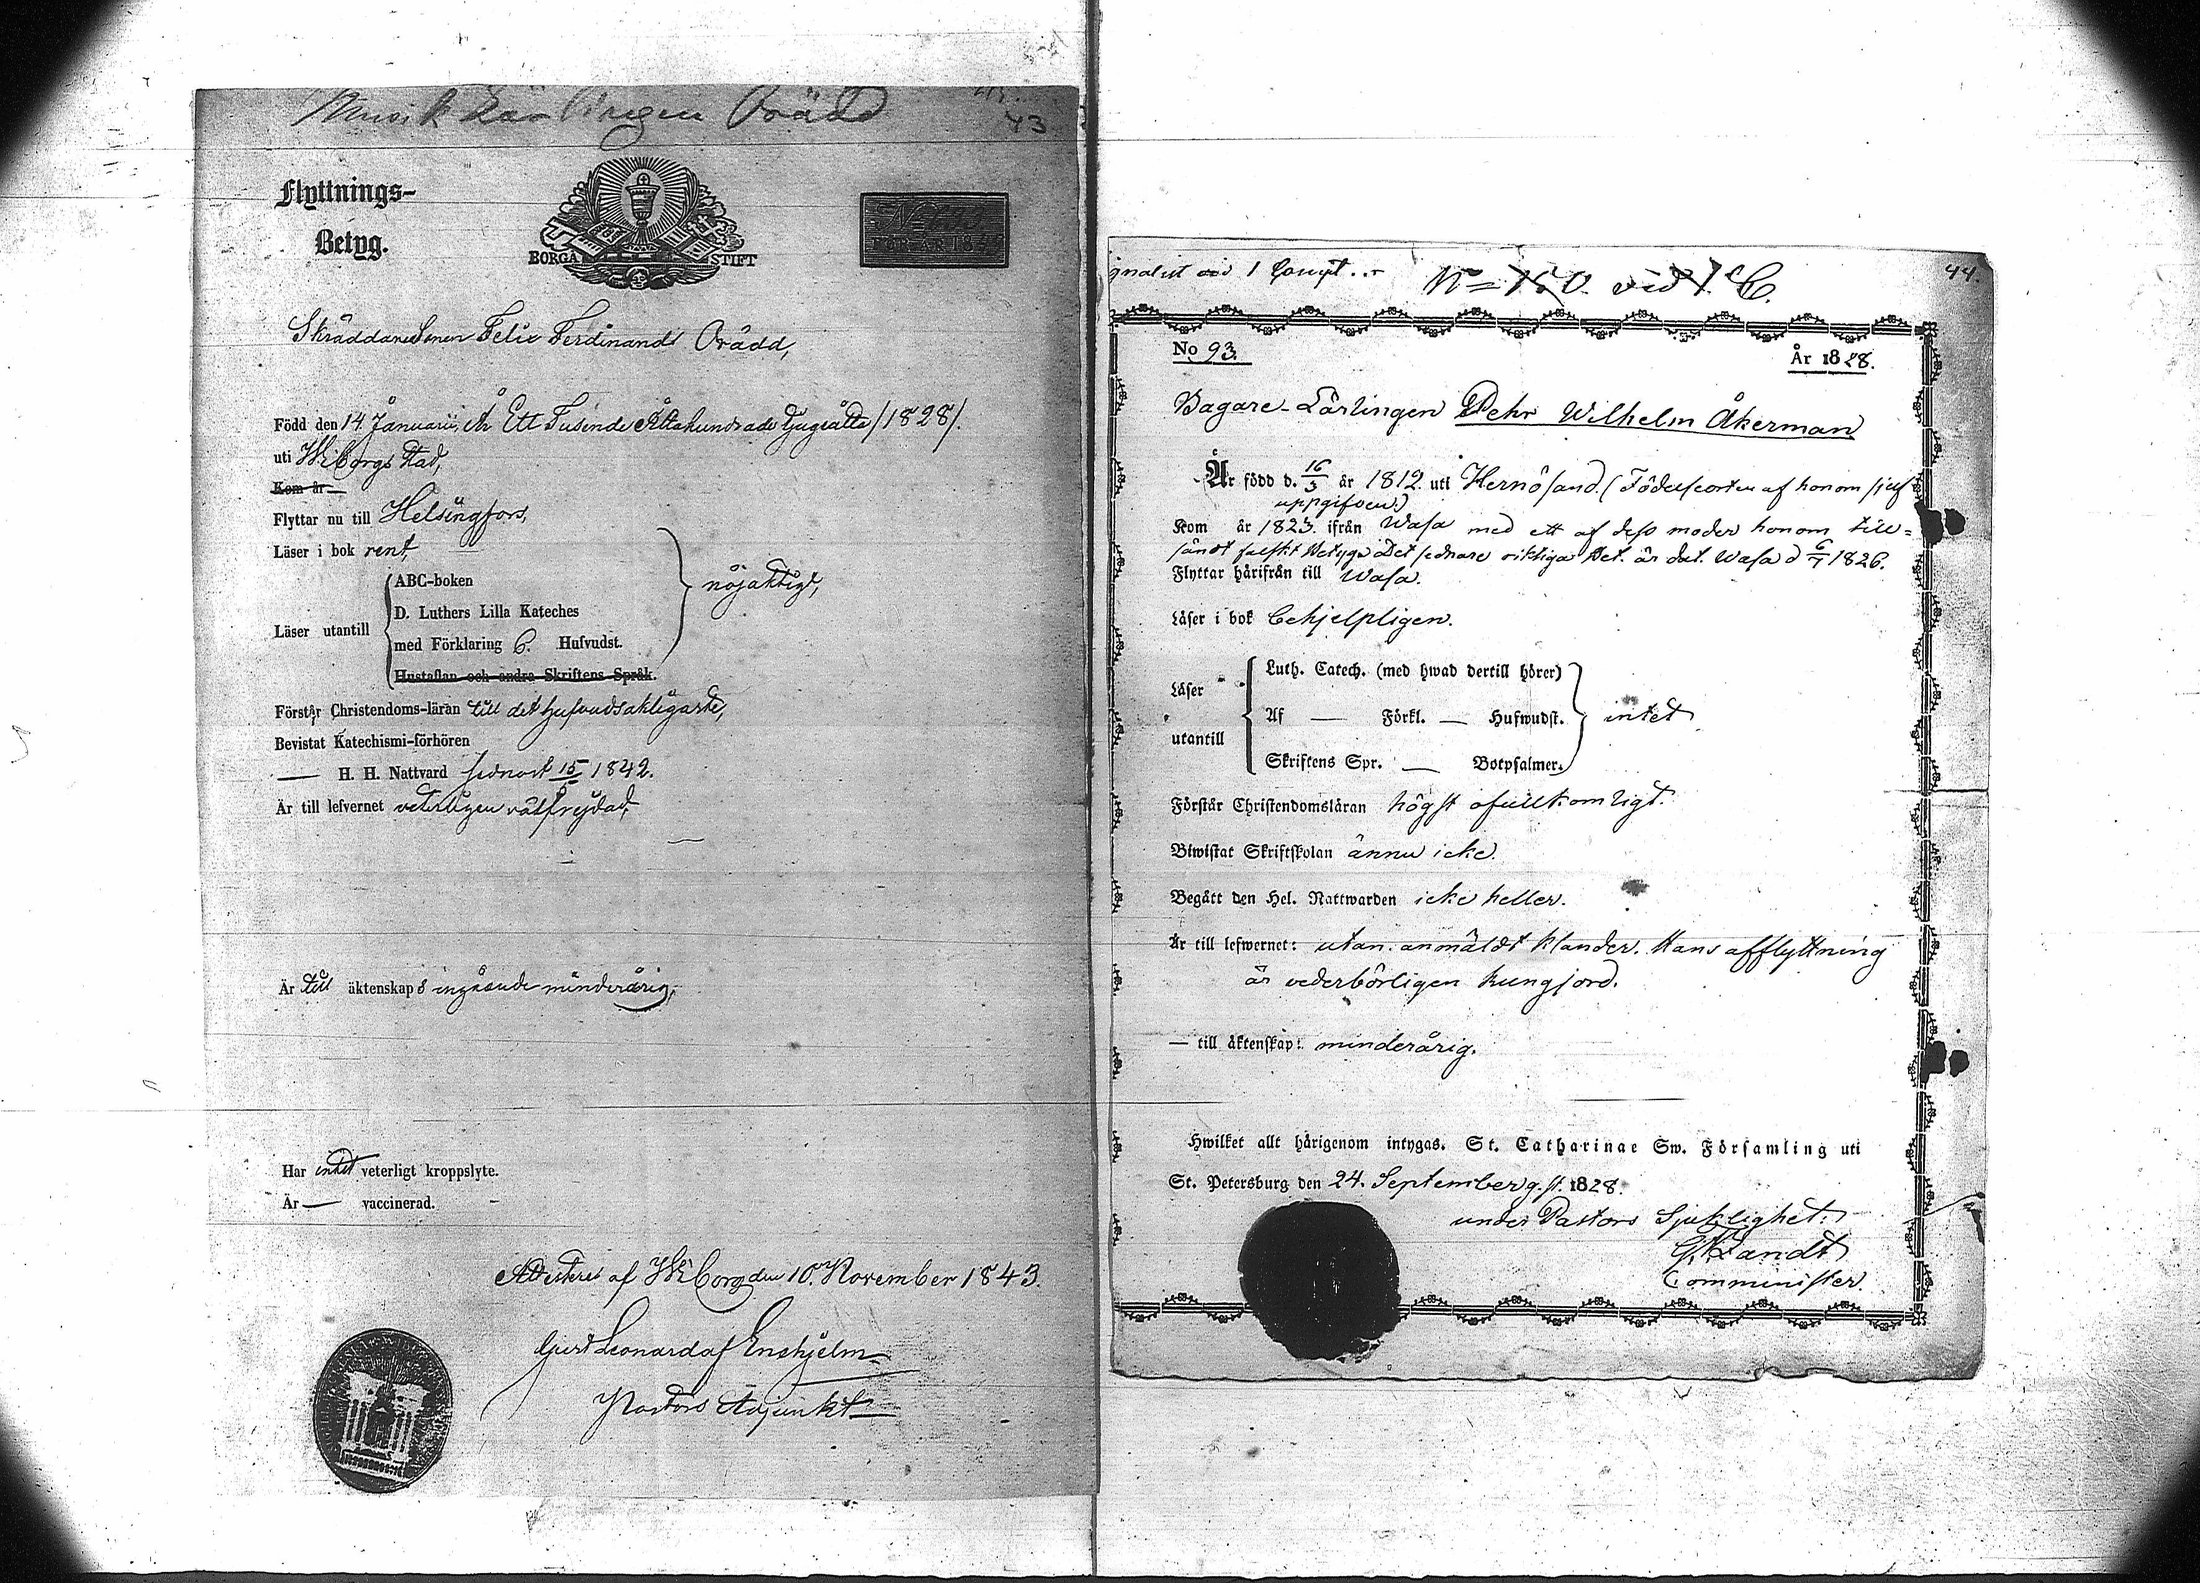 Musik Lärlingen Orädd
43
Flyttnings-
Betyg.
BORGÅ STIFT
FÖR ÅR 18
Skräddaresonen Felix Ferdinand Orädd,
Född den 14 Januarii, år Ett Tusende Åttahundrade tjugeåtta /1828/.
uti Wiborgs stad,
Kom år
Flyttar nu till Helsingfors,
Läser i bok rent
Läser utantill
ABC-boken
D. Luthers Lilla Kateches
med Förklaring 6. Hufvudst.
Hustaflan och andra Skriftens Språk.
nöjaktigt,
Förstår Christendoms-läran till det hufvudsakligaste,
Bevistat Katechismi-förhören
— H. H. Nattvard sednast 15 1842.
Är till lefvernet veterligen välfrejdad,
Är till äktenskaps ingående minderårig,
Har intet veterligt kroppslyte.
Är — vaccinerad.
Attesteras af Wiborg den 10 November 1843.
Leonard af Enehjelm
Pastors Adjunkt
44.
vid 1 Compt
No 150. vid 1. C.
No 93.
År 1828.
Bagare-Lärlingen Pehr Wilhelm Åkerman
Är född d. 16/3 år 1812 uti Hernösand. (Födelseorten af honom sjelf
uppgifven.)
Kom år 1823. ifrån Wasa med ett af dess moder honom till=
sändt falskt Betyg. Det sednare riktiga Bet. är dat. Wasa d 6/7 1826.
Flyttar härifrån till Wasa.
Läser i bok behjelpligen.
Läser
utantill
Luth. Catech. (med hwad dertill hörer)
Af — Förkl. — Hufwudst.
Skriftens Spr. — Botpsalmer.
intet
Förstår Christendomsläran högst ofullkomligt.
Biwistat Skriftskolan ännu icke.
Begått den Hel. Nattwarden icke heller.
Är till lefwernet: utan anmäldt klander. Hans afflyttning
är vederbörligen kungjord.
— till äktenskap: minderårig.
Hwilket allt härigenom intygas. St. Catharinae Sw. Församling uti
St. Petersburg den 24. September g. st. 1828.
under Pastors Sjuklighet:
Zandt
Comminister.